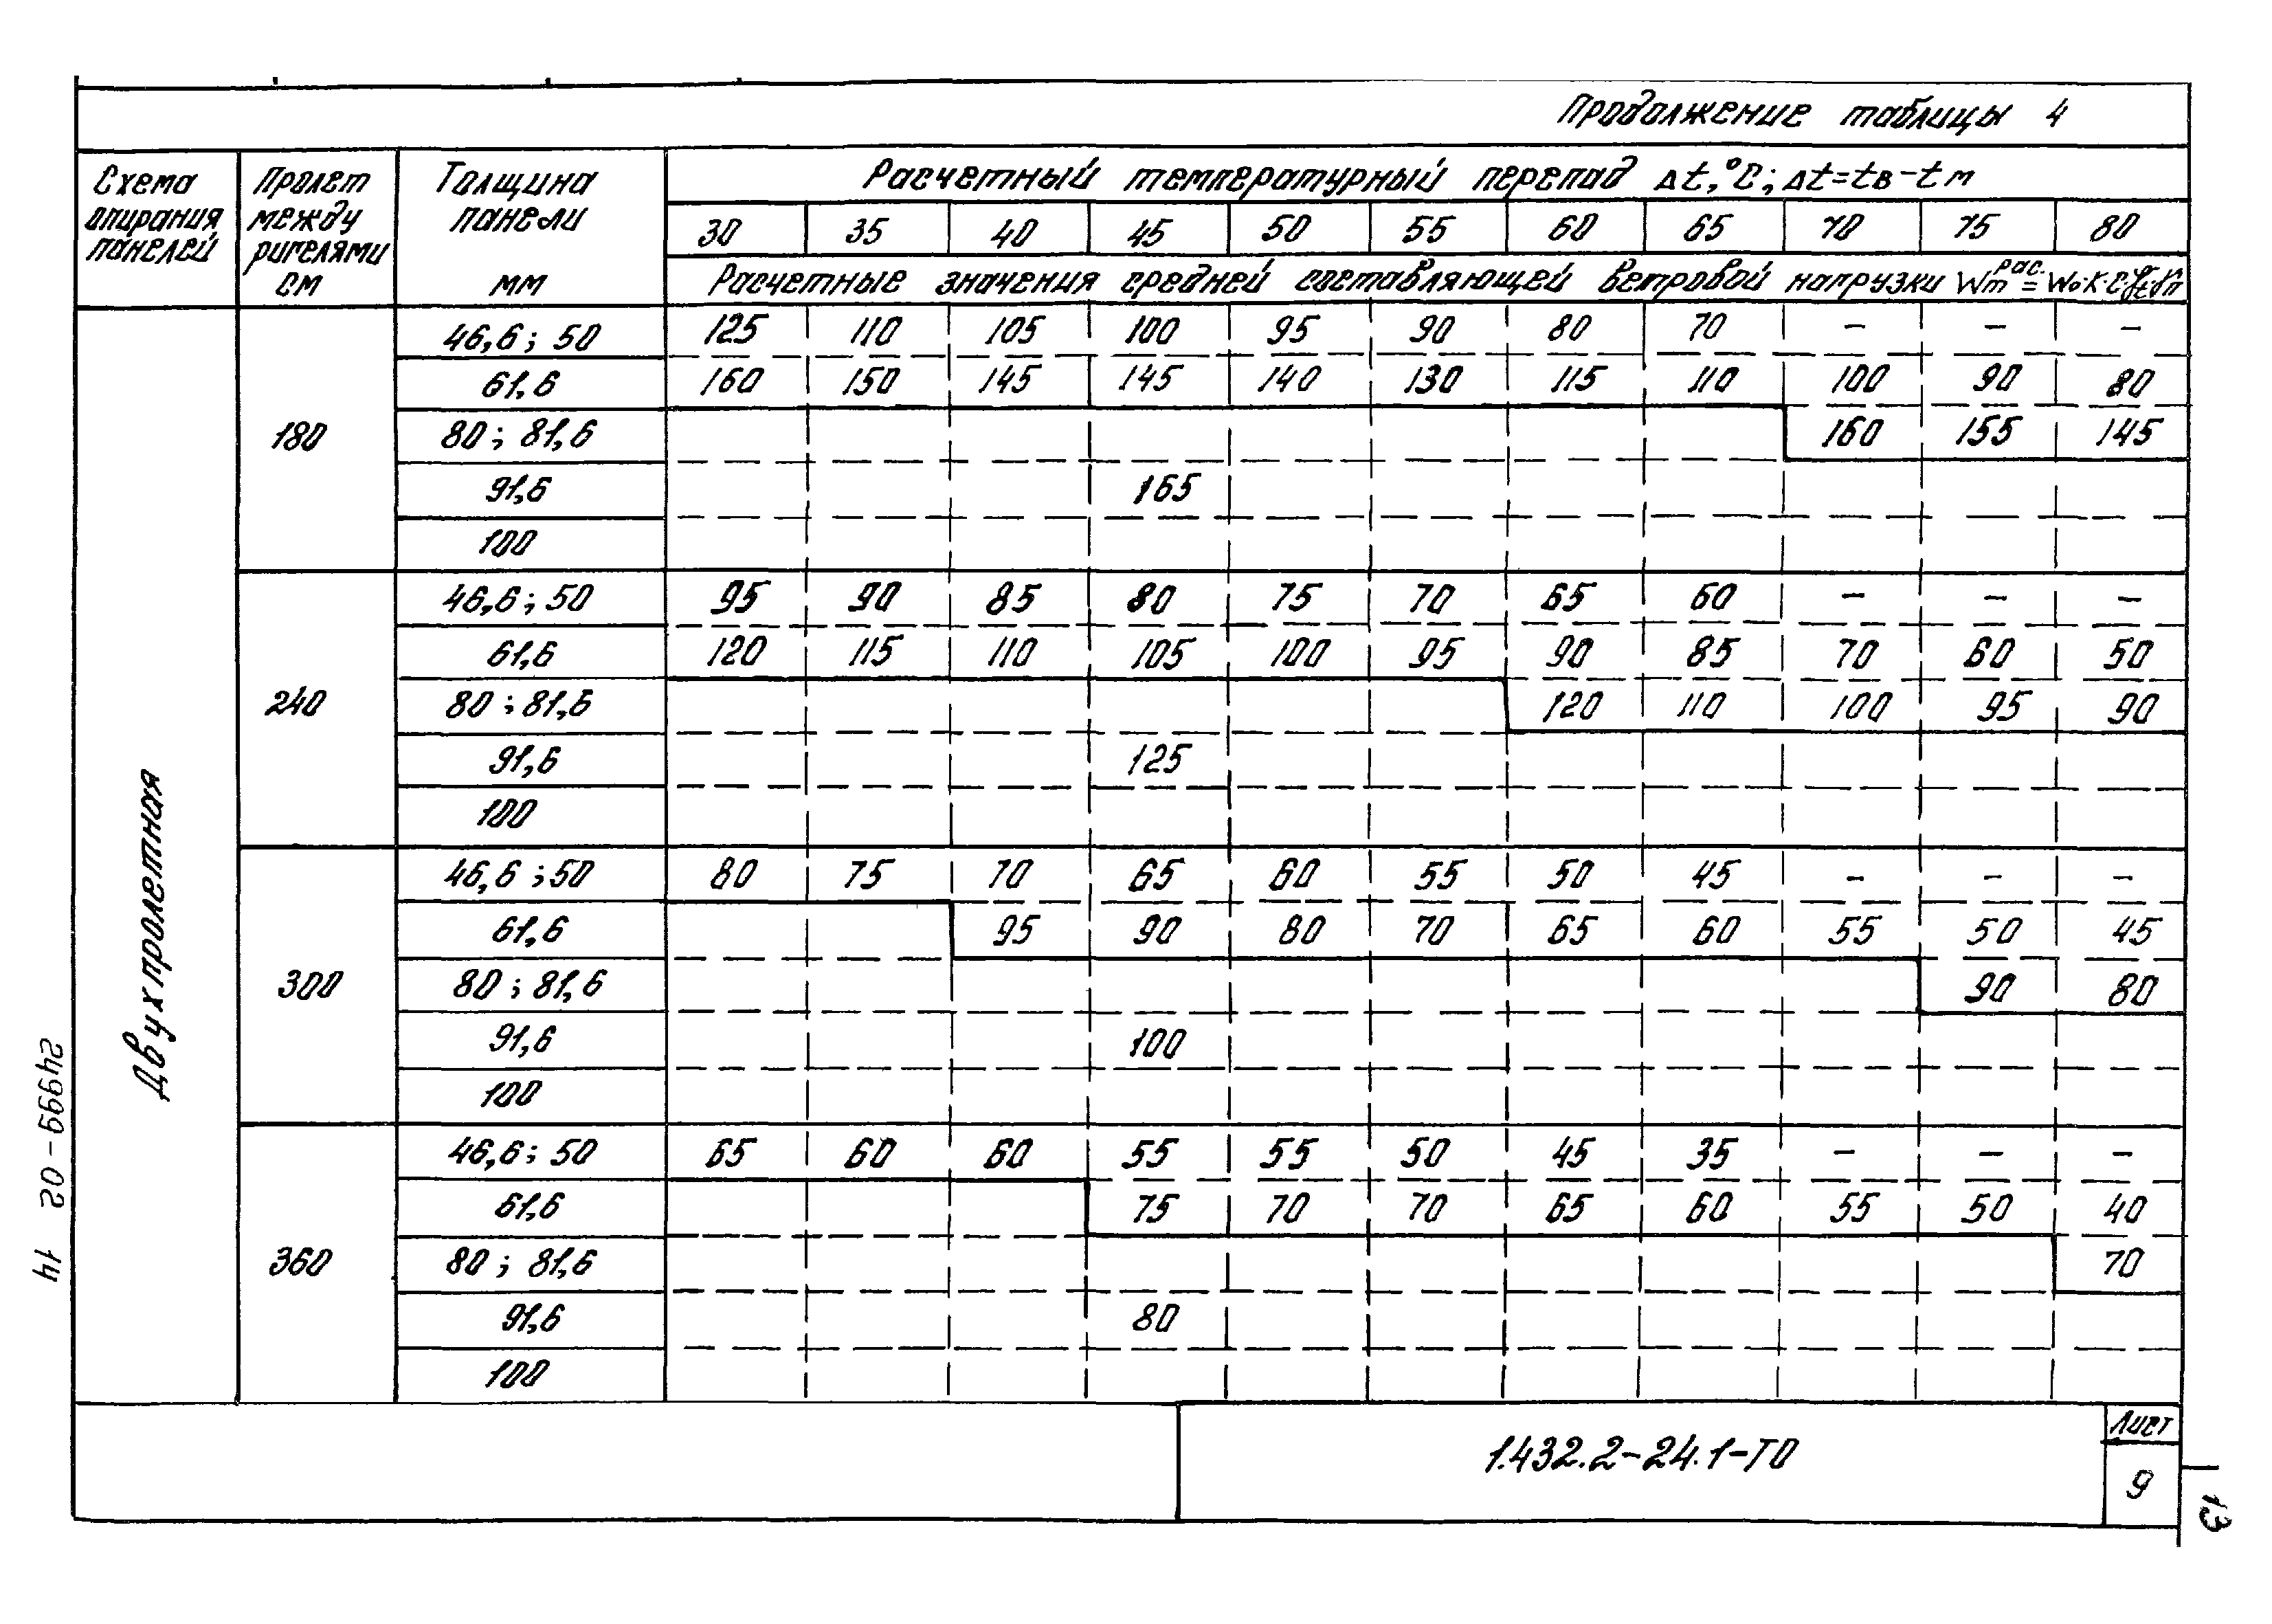 Продолжение таблицы 4
Схема опирания панелей
Пролет между ригелями см
Толщина панели мм
Расчетный температурный перепад Δt,°С; Δt=tв-tм
30 35 40 45 50 55 60 65 70 75 80
Расчетные значения средней составляющей ветровой нагрузки Wm рас. = Wo·K·C·γf·γn
Двухпролетная
180
46,6; 50 125 110 105 100 95 90 80 70 – – –
61,6 160 150 145 145 140 130 115 110 100 90 80
80; 81,6 160 155 145
91,6 165
100
240
46,6; 50 95 90 85 80 75 70 65 60 – – –
61,6 120 115 110 105 100 95 90 85 70 60 50
80; 81,6 120 110 100 95 90
91,6 125
100
300
46,6; 50 80 75 70 65 60 55 50 45 – – –
61,6 95 90 80 70 65 60 55 50 45
80; 81,6 90 80
91,6 100
100
360
46,6; 50 65 60 60 55 55 50 45 35 – – –
61,6 75 70 70 65 60 55 50 40
80; 81,6 70
91,6 80
100
1.432.2-24.1-ТО
Лист
9
24999-02 14
13